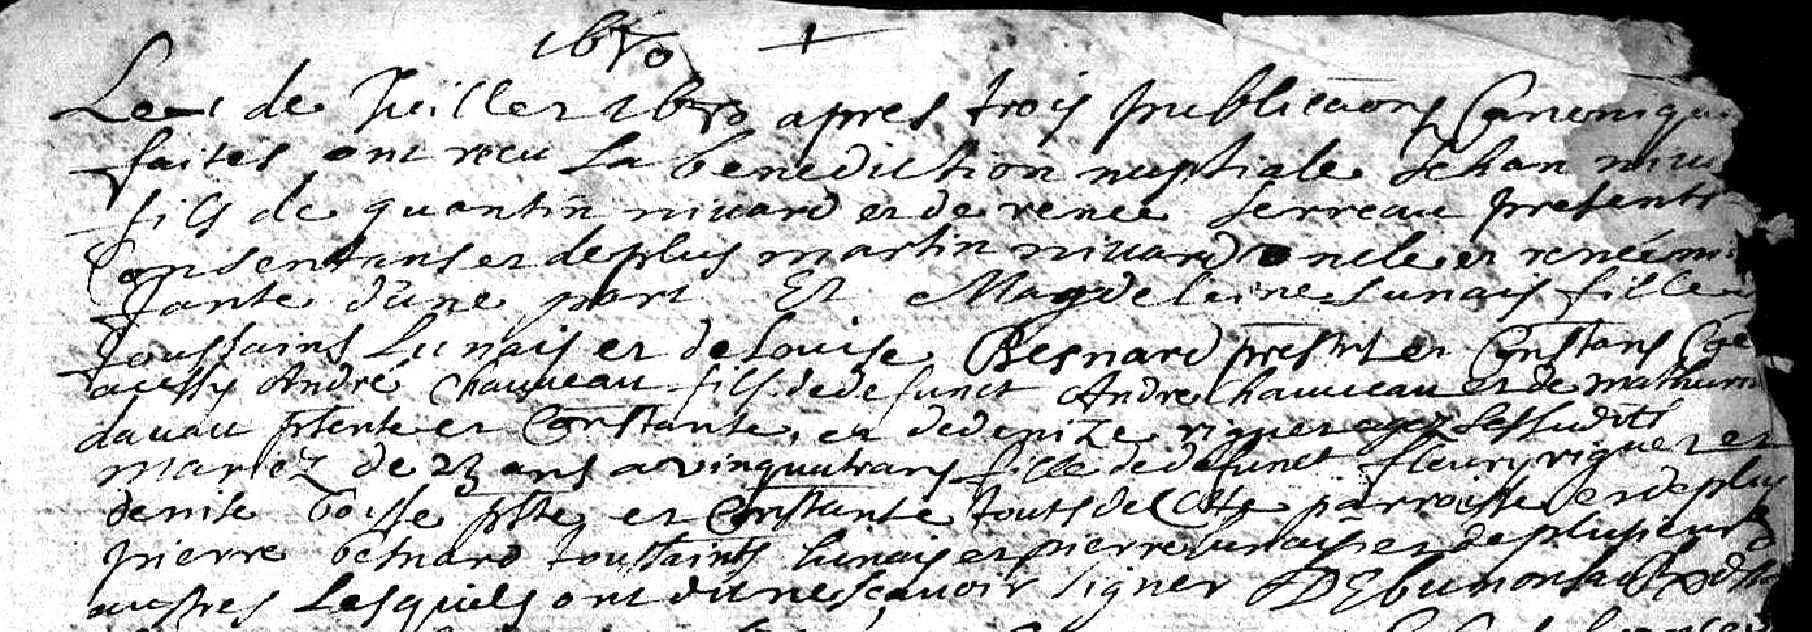 1670
Le 1 de Jeuillet 1670 apres trois publicaõns Canoniqu
faites ont receu La benediction nuptiale Jehan nivu
fils de quantin nivard et de renee Serreau presents
Consentans et deplus martin nivard oncle et renée
tante d'une part Et Magdeleine Lunais fille
toussains Lunais et de Louise Besnard prestes et Constans
acessy André Chauveau fils de defunct André Chauveau et de mathurin
davau ptente et Constante, et de denize riguer agez Lessudits
mariez de 23 ans a vinquatrans fille de defunct fleury riguer et
denise boisse pste et Constante touts de Cste parroisse et de plus
pierre besnard toussaints Lunais et pierre lunais et de plusieurs
austres Lesquels ont dit ne scavoir signer